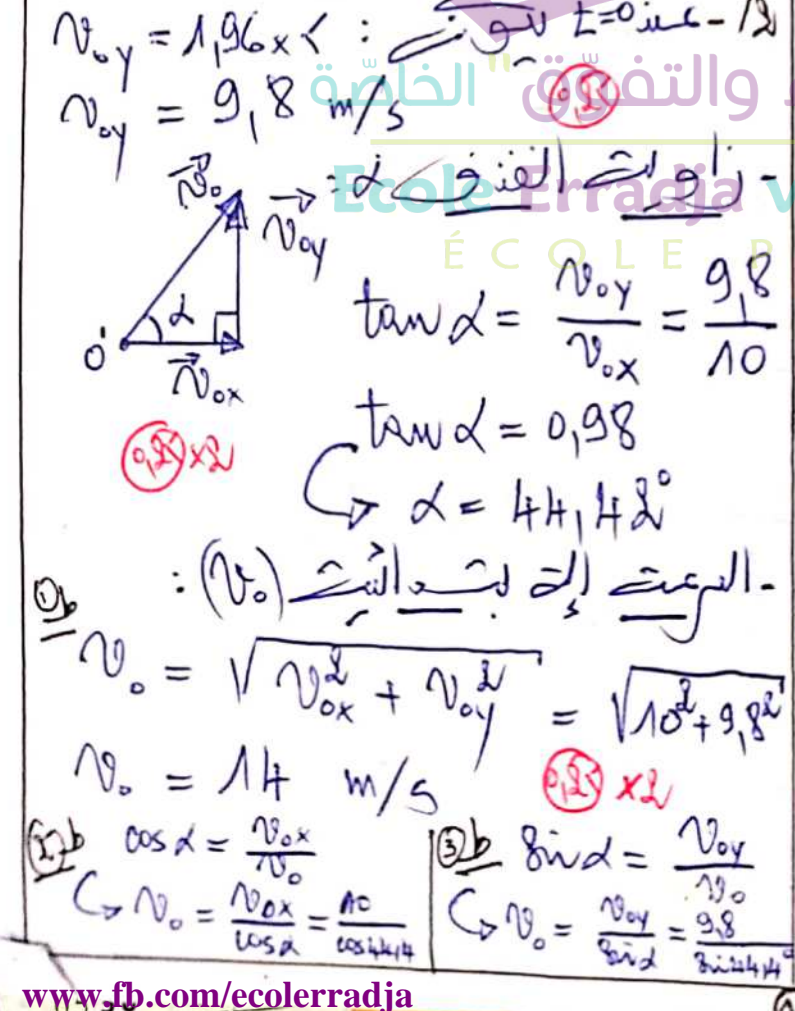 12- عند t=0 يكون : v₀y = 1,96×5
v₀y = 9,8 m/s
0,25
والتفوّق" الخاصّة
Ecole Erradja
ÉCOLE P
- زاوية القذف α :
v⃗₀
v⃗₀y
α
O'
v⃗₀x
tan α = v₀y/v₀x = 9,8/10
tan α = 0,98
0,25×2
↪ α = 44,42°
- السرعة الابتدائية (v₀) :
①b
v₀ = √(v₀x² + v₀y²) = √(10²+9,8²)
v₀ = 14 m/s
0,25×2
②b cos α = v₀x/v₀
↪ v₀ = v₀x/cos α = 10/cos44,4
③b sin α = v₀y/v₀
↪ v₀ = v₀y/sin α = 9,8/sin44,4°
www.fb.com/ecolerradja